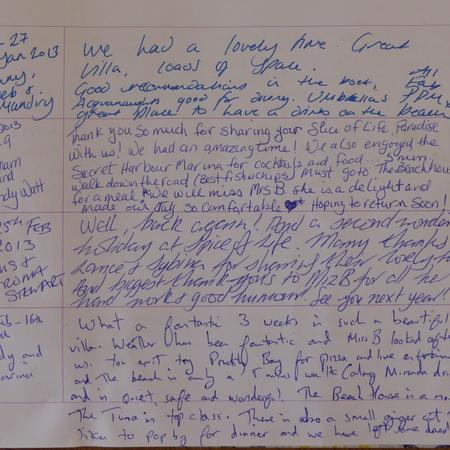 - 27
Jan 2013
We had a lovely time. Great
Villa, loads of space.
Good recommendations in the book,
Aquanaughts good for dinner. Umbrellas
great place to have a drink on the beach
2013
Thank you so much for sharing your Spice of Life, Paradise
with us! We had an amazing time! We also enjoyed the
Secret Harbour Marina for cocktails and food... 5 min
walk down the road (Best fish uchies) Must go to The Beach house
for a meal. We will miss Mrs B. she is a delight and
made our stay so comfortable Hoping to return Soon!
Watt
25th FEB
2013
STEWART
Well, back again! And a second wonder
holiday at Spice of Life. Many thanks
for sharing their lovely
And biggest thanks goes to Mrs B for all he
hard work & good humour. See you next year!
Feb - 16th
What a fantastic 3 weeks in such a beautiful
villa. Weather has been fantastic and Mrs B looked afte
us. You must try Prickly Bay for pizza and live entertainm
and the beach is only a 5 mins walk Calong Miranda dr
and is quiet, safe and wonderful. The Beach House is a m
The Tuna is top class. There is also a small ginger cat
likes to pop by for dinner and we have left some dried